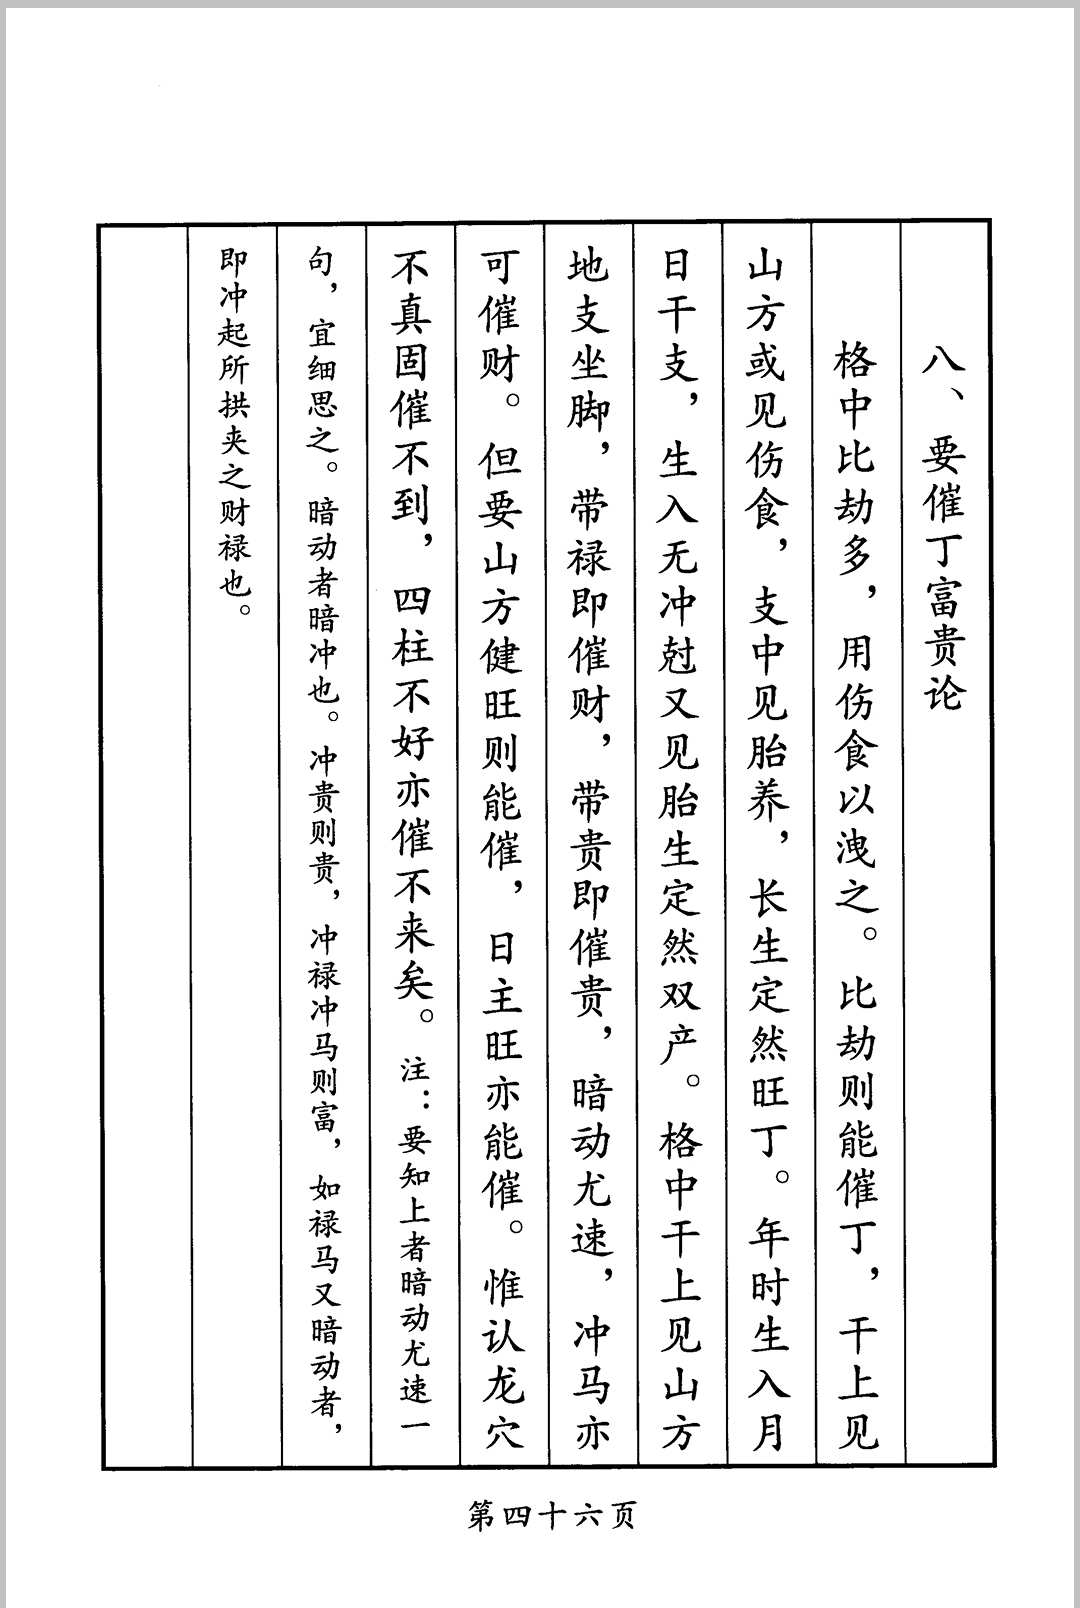 八、要催丁富贵论
格中比劫多，用伤食以洩之。比劫则能催丁，干上见
山方或见伤食，支中见胎养，长生定然旺丁。年时生入月
日干支，生入无冲尅又见胎生定然双产。格中干上见山方
地支坐脚，带禄即催财，带贵即催贵，暗动尤速，冲马亦
可催财。但要山方健旺则能催，日主旺亦能催。惟认龙穴
不真固催不到，四柱不好亦催不来矣。注：要知上者暗动尤速一
句，宜细思之。暗动者暗冲也。冲贵则贵，冲禄冲马则富，如禄马又暗动者，
即冲起所拱夹之财禄也。
第四十六页